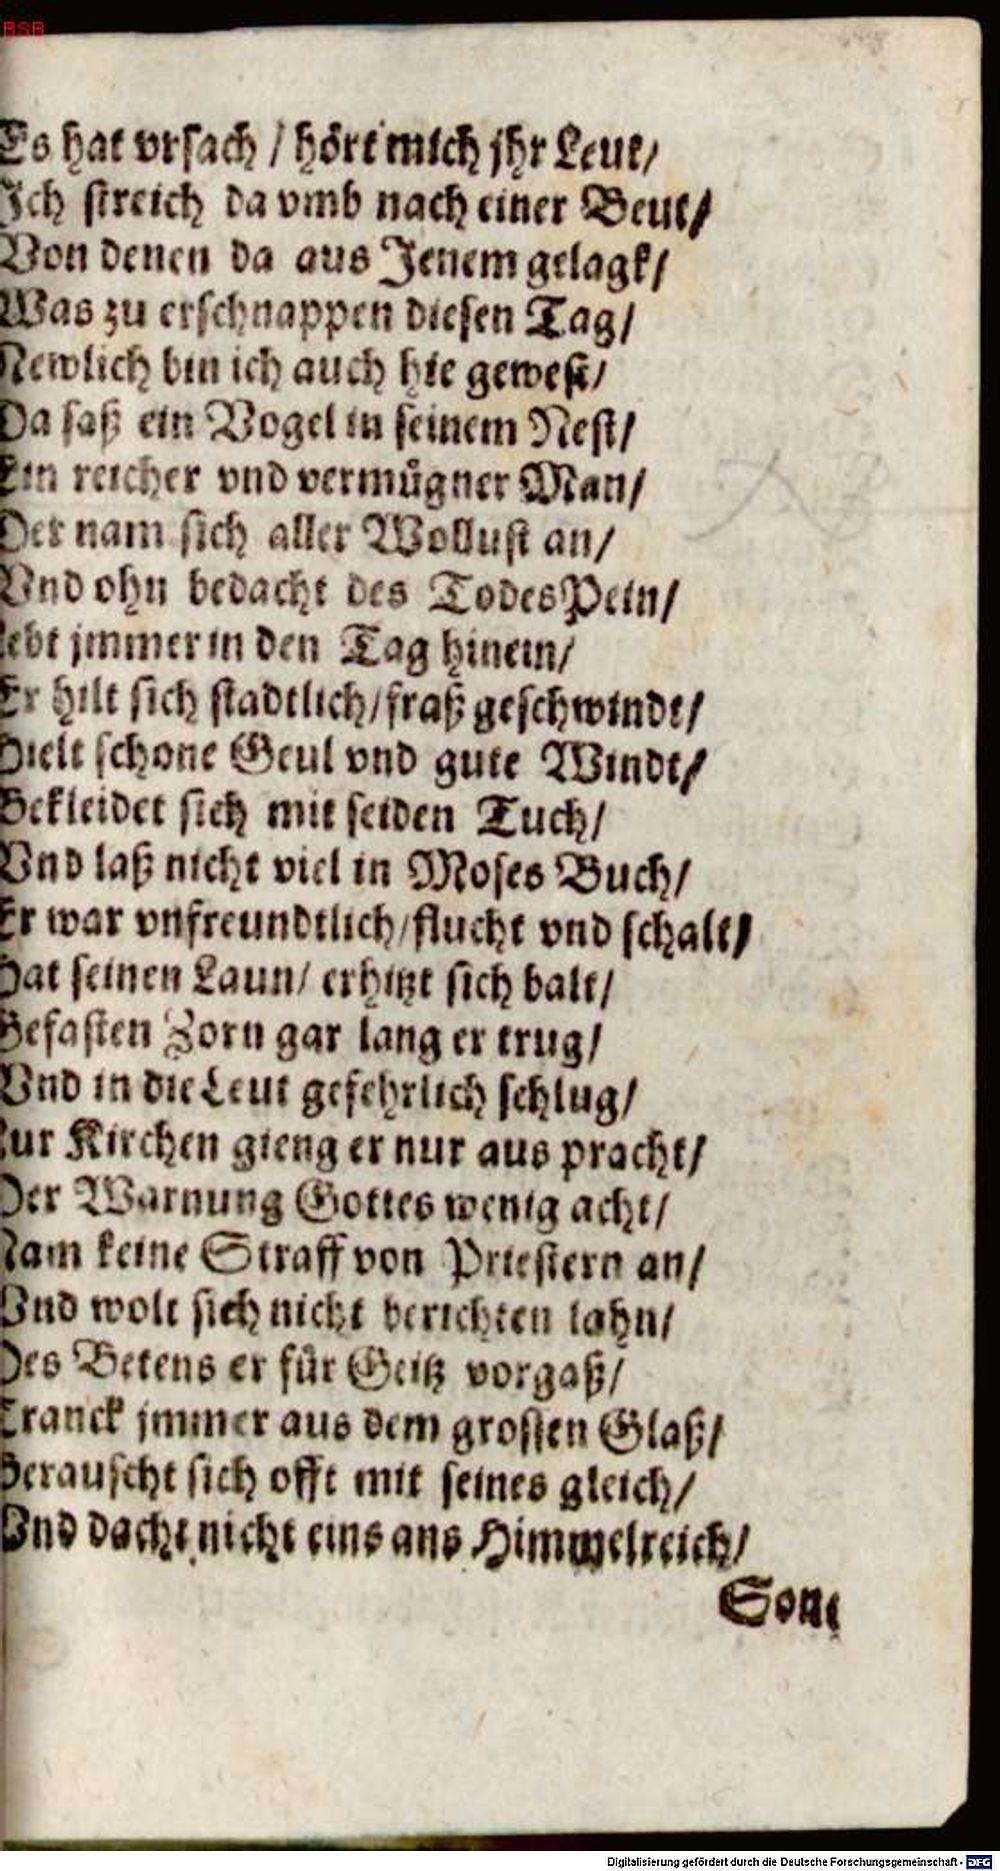 BSB
Es hat vrsach / hört mich jhr Leut /
Ich streich da vmb nach einer Beut /
Von denen da aus Jenem gelagk /
Was zu erschnappen diesen Tag /
Newlich bin ich auch hie gewest /
Da saß ein Vogel in seinem Nest /
Ein reicher vnd vermügner Man /
Der nam sich aller Wollust an /
Vnd ohn bedacht des Todes Pein /
lebt jmmer in den Tag hinein /
Er hilt sich stadtlich / fraß geschwindt /
Hielt schone Geul vnd gute Windt /
Bekleidet sich mit seiden Tuch /
Vnd laß nicht viel in Moses Buch /
Er war vnfreundtlich / flucht vnd schalt /
Hat seinen Laun / erhitzt sich balt /
Gefasten Zorn gar lang er trug /
Vnd in die Leut gefehrlich schlug /
Zur Kirchen gieng er nur aus pracht /
Der Warnung Gottes wenig acht /
Nam keine Straff von Priestern an /
Vnd wolt sich nicht berichten lahn /
Des Betens er für Geitz vorgaß /
Tranck jmmer aus dem grosten Glaß /
Berauscht sich offt mit seines gleich /
Vnd dacht nicht eins ans Himmelreich /
Son,
Digitalisierung gefördert durch die Deutsche Forschungsgemeinschaft - DFG